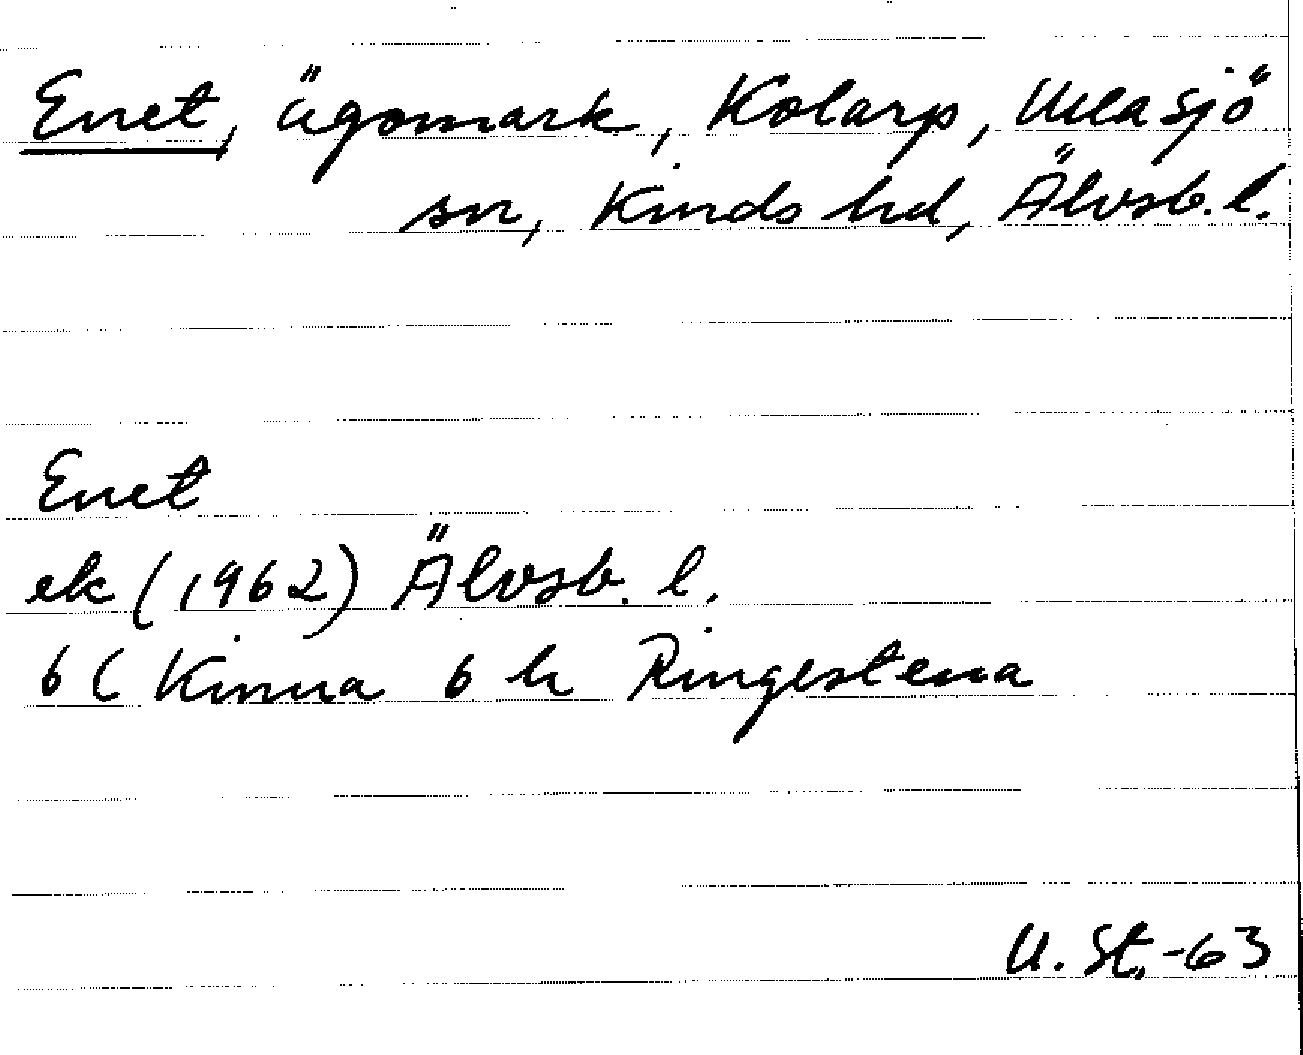 Enet, ägomark, Kolarp, Ullasjö
sn, Kinds hd, Älvsb. l.
Enet
ek (1962) Älvsb. l.
6 C Kinna 6 h Ringestena
U. St. -63